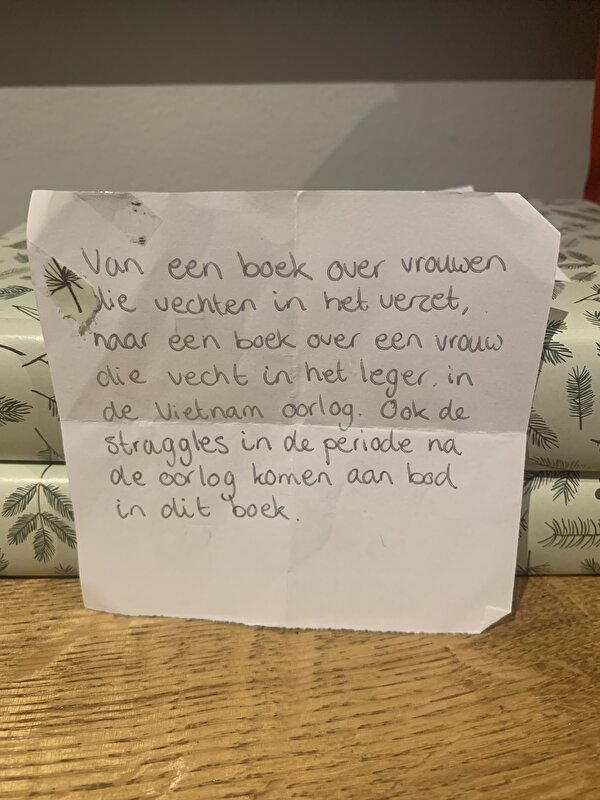 Van een boek over vrouwen
die vechten in het verzet,
naar een boek over een vrouw
die vecht in het leger, in
de Vietnam oorlog. Ook de
straggles in de periode na
de oorlog komen aan bod
in dit boek.